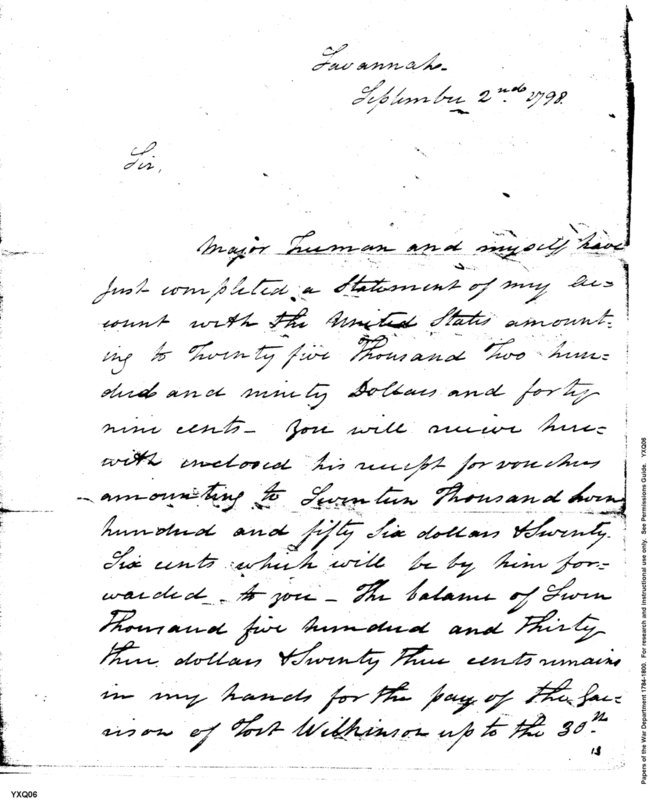 Savannah-
September 2nd 1798.
Sir,
Major Freeman and myself have
just completed a Statement of my ac=
count with the United States amount-
ing to Twenty five Thousand Two hun=
dred and ninety Dollars and forty
nine cents - you will receive here=
with enclosed his receipt for vouchers
amounting to Seventeen Thousand Seven
hundred and fifty Six dollars & Seventy
Six cents which will be by him for=
warded - to you - The balance of Seven
Thousand five hundred and Thirty
three dollars & Seventy three cents remains
in my hands for the pay of the Gar=
rison of Fort Wilkinson up to the 30th
YXQ06
Papers of the War Department 1784-1800. For research and instructional use only. See Permissions Guide. YXQ06